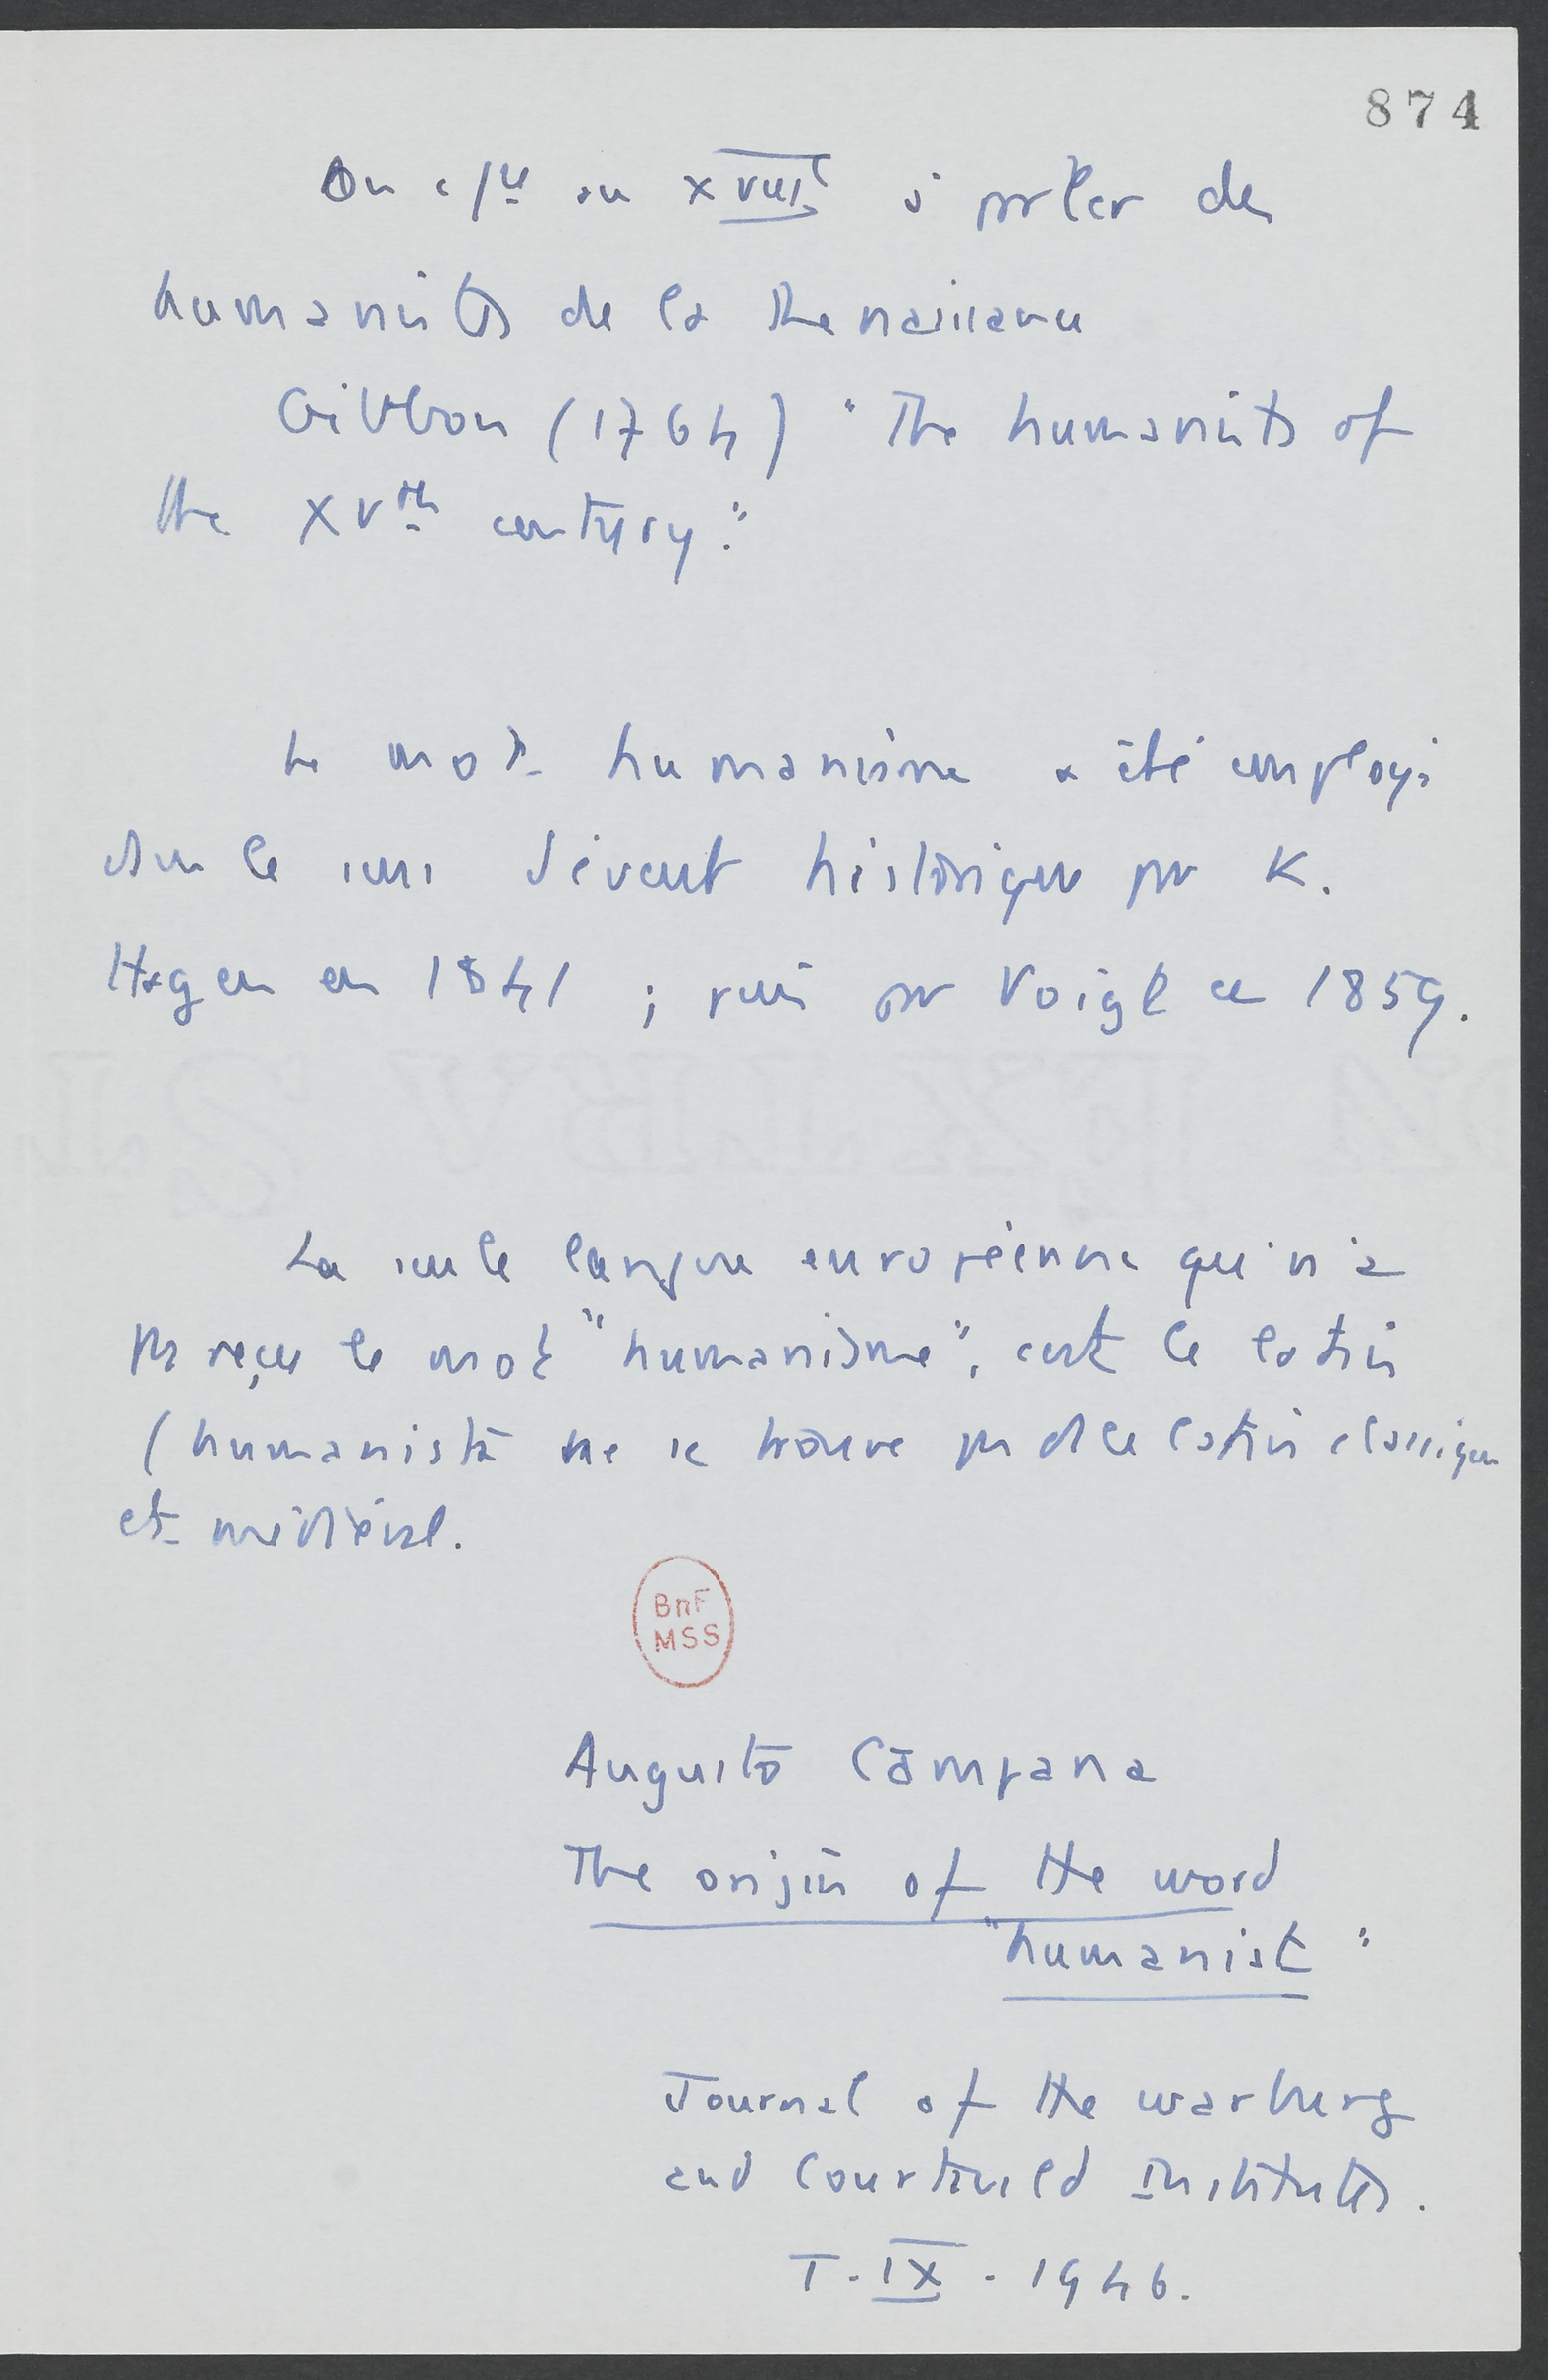 874
On c/ce au XVIIIe à parler des
humanistes de la Renaissance
Gibbon (1764) "The humanists of
the XVth century."
Le mot humanisme a été employé
dans le sens devenu historique par K.
Hagen en 1841 ; puis par Voigt en 1859.
La seule langue européenne qui n'a
pas reçu le mot "humanisme", c'est le latin
(humanista ne se trouve pas ds le latin classique
et médiéval.
BnF
MSS
Augusto Campana
The origin of the word
"humanist"
Journal of the Warburg
and Courtauld Institutes.
T. IX. 1946.